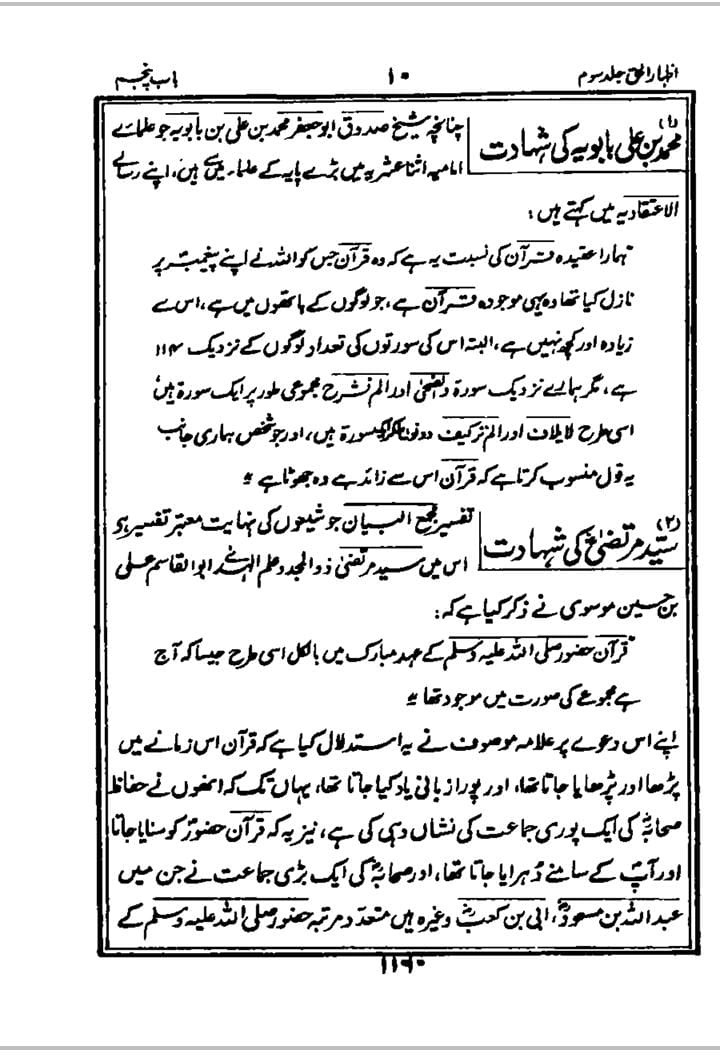 اظہار الحق جلد سوم ۱۰ باب پنجم
(۱) محمد بن علی بابویہ کی شہادت
چنانچہ شیخ صدوق ابوجعفر محمد بن علی بن بابویہ جو علمائے
امامیہ اثنا عشریہ میں بڑے پایہ کے علماء میں سے ہیں، اپنے رسالے
الاعتقادیہ میں کہتے ہیں:
"ہمارا عقیدہ قرآن کی نسبت یہ ہے کہ وہ قرآن جس کو اللہ نے اپنے پیغمبر پر
نازل کیا تھا وہ یہی موجودہ قرآن ہے، جو لوگوں کے ہاتھوں میں ہے، اس سے
زیادہ اور کچھ نہیں ہے، البتہ اس کی سورتوں کی تعداد لوگوں کے نزدیک ۱۱۴
ہے، مگر ہمارے نزدیک سورۃ والضحیٰ اور الم نشرح مجموعی طور پر ایک سورۃ ہیں
اسی طرح لایلاف اور الم ترکیف دونوں ملکر ایک سورۃ ہیں، اور جو شخص ہماری جانب
یہ قول منسوب کرتا ہے کہ قرآن اس سے زائد ہے وہ جھوٹا ہے"
(۲) سیّد مرتضیٰ کی شہادت
تفسیر مجمع البیان جو شیعوں کی نہایت معتبر تفسیر ہے
اس میں سید مرتضیٰ ذوالمجد و علم الہدیٰ ابوالقاسم علی
بن حسین موسوی نے ذکر کیا ہے کہ:
"قرآن حضور صلی اللہ علیہ وسلم کے عہد مبارک میں بالکل اسی طرح جیسا کہ آج
ہے مجموعے کی صورت میں موجود تھا"
اپنے اس دعوے پر علامہ موصوف نے یہ استدلال کیا ہے کہ قرآن اس زمانے میں
پڑھا اور پڑھایا جاتا تھا، اور پورا زبانی یاد کیا جاتا تھا، یہاں تک کہ انھوں نے حفاظ
صحابہؓ کی ایک پوری جماعت کی نشاں دہی کی ہے، نیز یہ کہ قرآن حضورؐ کو سنایا جاتا
اور آپؐ کے سامنے دُہرایا جاتا تھا، اور صحابہؓ کی ایک بڑی جماعت نے جن میں
عبداللہ بن مسعودؓ، ابی بن کعبؓ وغیرہ ہیں متعدد مرتبہ حضور صلی اللہ علیہ وسلم کے
۱۱۶۰